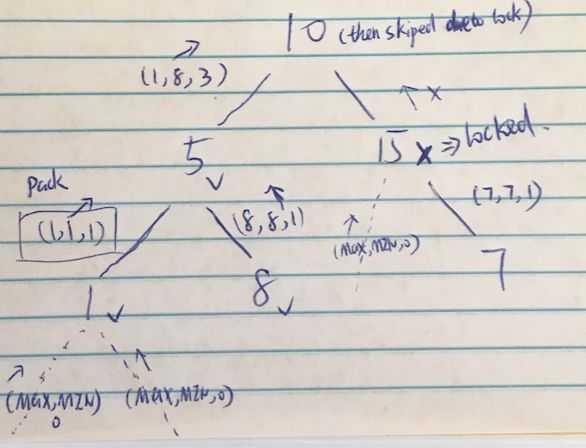 10 (then skiped due to lock)
(1, 8, 3)
x
5
15 x => locked.
Pack
(1, 1, 1)
(8, 8, 1)
(7, 7, 1)
(Max, MIN, 0)
1
8
7
(Max, MIN)
0
(Max, MIN, 0)